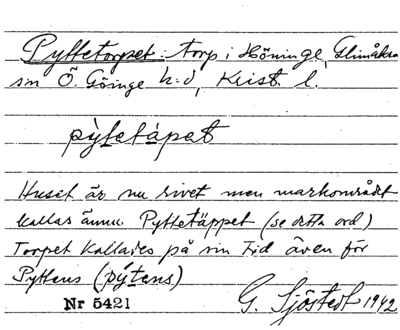 Pyttetorpet: torp i Höninge, Glimåkra
sn Ö. Göinge h:d, Krist. l.
pỳtetàpet
Huset är nu rivet men markområdet
kallas ännu Pyttetäppet (se detta ord)
Torpet kallades på sin tid även för
Pyttens (pýtens)
Nr 5421
G. Sjöstedt 1942